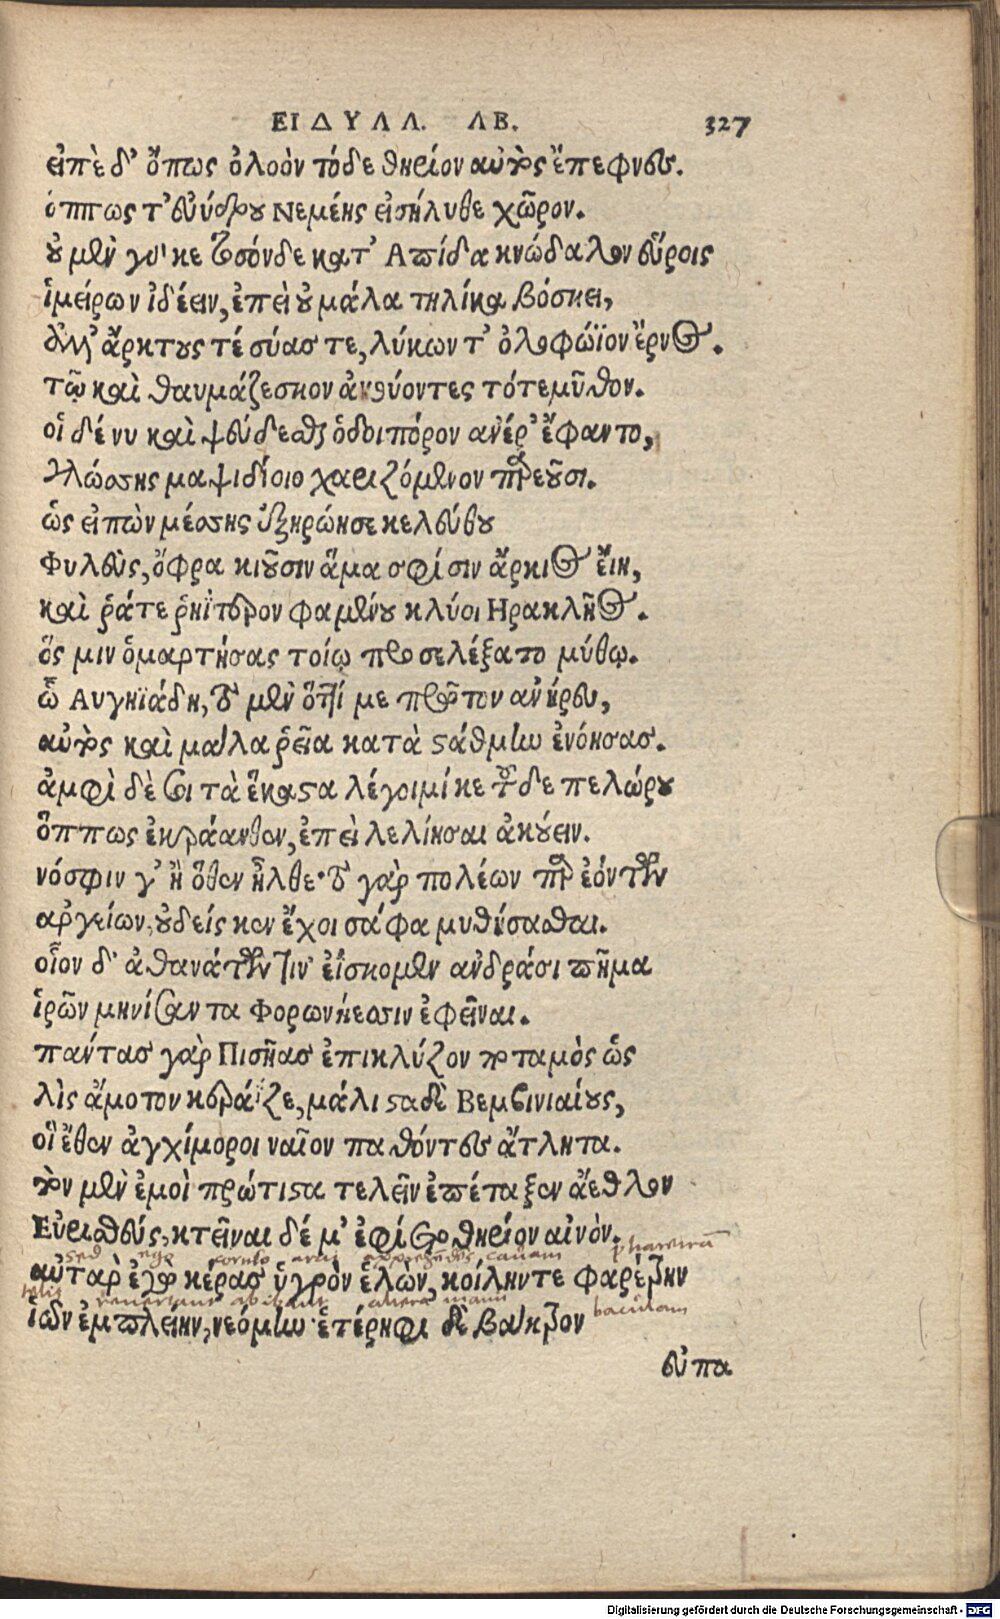 ΕΙΔΥΛΛ. ΛΒ. 327
εἰπὲ δ' ὅπως ὀλοὸν τόδε θηρίον αὐτὸς ἔπεφνες.
ὅππως τ' εὐύδρου Νεμέης εἰσήλυθε χῶρον.
οὐ μὲν γάρ κε τοσόνδε κατ' Απίδα κνώδαλον εὕροις
ἱμείρων ἰδέειν, ἐπεὶ οὐ μάλα τηλίκα βόσκει,
ἀλλ' ἄρκτους τέ σύας τε, λύκων τ' ὀλοφώϊον ἔρνος.
τῷ καὶ θαυμάζεσκον ἀκούοντες τότε μῦθον.
οἱ δέ νυ καὶ ψεύδεσθαι ὁδοιπόρον ἀνέρ' ἔφαντο,
γλώσσης μαψιδίοιο χαριζόμενον παρεοῦσι.
ὣς εἰπὼν μέσσης ἐξηρώησε κελεύθου
Φυλεὺς, ὄφρα κιοῦσιν ἅμα σφίσιν ἄρκιος εἴη,
καὶ ῥά τε ῥηΐτερον φαμένου κλύοι Ηρακλῆος.
ὅς μιν ὁμαρτήσας τοίῳ προσελέξατο μύθῳ.
ὦ Αυγηϊάδη, τὸ μὲν ὅττί με πρῶτον ἀνήρευ,
αὐτὸς καὶ μάλα ῥεῖα κατὰ στάθμην ἐνόησας.
ἀμφὶ δὲ σοι τὰ ἕκαστα λέγοιμί κε τοῦδε πελώρου
ὅππως ἐκράανθεν, ἐπεὶ λελίησαι ἀκούειν.
νόσφιν γ' ἢ ὅθεν ἦλθε· τὸ γὰρ πολέων παρ ἐόντων
αργείων, οὐδείς κεν ἔχοι σάφα μυθήσασθαι.
οἷον δ' ἀθανάτων τιν' ἐΐσκομεν ἀνδράσι πῆμα
ἱρῶν μηνίσαντα Φορωνήεσσιν ἐφεῖναι.
πάντας γὰρ Πισῆας ἐπικλύζον ποταμὸς ὣς
λὶς ἄμοτον κεράϊζε, μάλιστα δὲ Βεμβινιαίους,
οἳ ἕθεν ἀγχίμοροι ναῖον παθόντες ἄτλητα.
τὸν μὲν ἐμοὶ πρώτιστα τελεῖν ἐπέταξεν ἄεθλον
Εὐρισθεύς, κτεῖναι δέ μ' ἐφίετο θηρίον αἰνὸν.
sed ego cornu cavam pharetrã
αὐτὰρ ἐγὼ κέρας ὑγρὸν ἑλὼν, κοίλην τε φαρέτρην
altera manu bacùlum
ἰῶν ἐμπλείην, νεόμην ἑτέρηφι δὲ βάκτρον
εὐπα
Digitalisierung gefördert durch die Deutsche Forschungsgemeinschaft - DFG